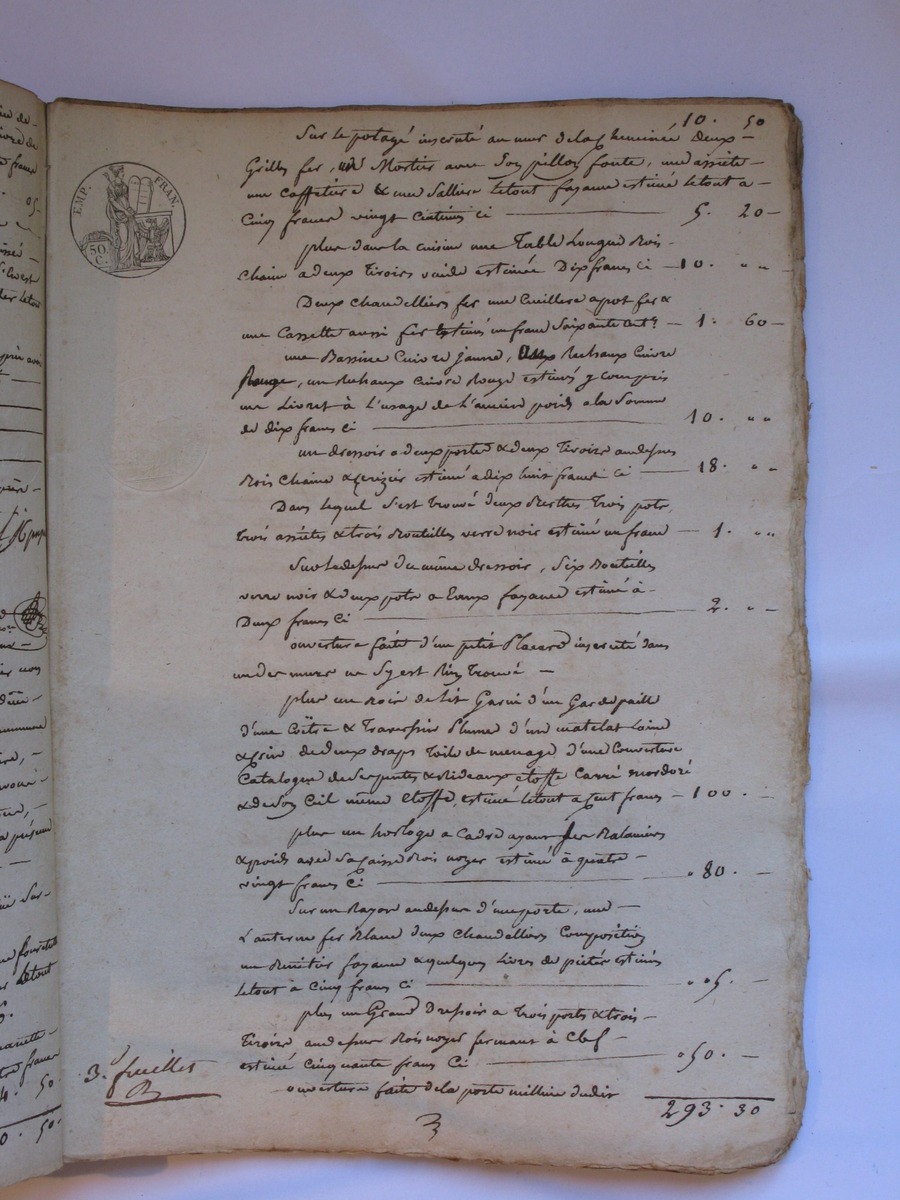 EMP. FRAN.
50 C.
10. 50
Sur le potagé inscruté au mur de la Cheminée deux
Grills fer, un Mortier avec son pillon fonte, une assiete
une Caffetiere & une Salliere le tout fayance estimé le tout a
Cinq francs vingt Centimes ci — 5. 20
plus dans la cuisine une Table Longue Bois
Chaine a deux Tiroirs vuide estimée Dix francs ci — 10. " "
Deux Chandelliers fer une Cuillere a pot fer &
une Cassette aussi fer Estimés un franc Soixante Cent.s — 1. 60
une Bassine Cuivre jaune, deux Rechaux Cuivre
Rouge, un Rechaux Cuivre Rouge estimés y compris
un Livret à L'usage de L'ancien poids a la Somme
de dix francs ci — 10. " "
un dressoir a deux portes & deux Tiroirs au dessus
Bois Chaine & Cerizier estimé a dix huit francs ci — 18. " "
Dans lequel S'est Trouvé deux Trois pots,
Trois assiétes & trois Bouteilles verre noir estimé un franc — 1. " "
Sur le dessus du même dressoir, Six Bouteilles
verre noir & deux pots a Eaux fayance estimé à
Deux francs ci — 2. " "
ouverture faite d'un petit Placard inscruté dans
un des murs ne S'y est Rien Trouvé —
plus un Bois de Lit Garni d'un Gardepaille
d'une Coëtre & Traversin Plume d'un matelat Laine
& Crin de deux draps Toile de menage d'une Couverture
Catalogne de Serpentes & Rideaux etoffe Carré mordoré
& de Son Ciel même etoffe, estimé le tout a Cent francs — 100. —
plus un horloge a Cadre ayant Ses Balanciers
& poids avec Sa Caisse Bois noyer estimé à quatre
vingt francs Ci — 80. —
Sur un Rayon au dessus d'une porte, une
Lanterne fer Blanc deux Chandelliers Composition
un Benitier fayance & quelques Livres de pieté estimés
le tout à Cinq francs Ci — 05. —
plus un Grand Dressoir a Trois portes & trois
Tiroirs au dessus Bois noyer fermant à Clef
estimé Cinquante francs Ci — 50. —
ouverture faite de la porte milliere dudit
293. 30
3.e feuillet